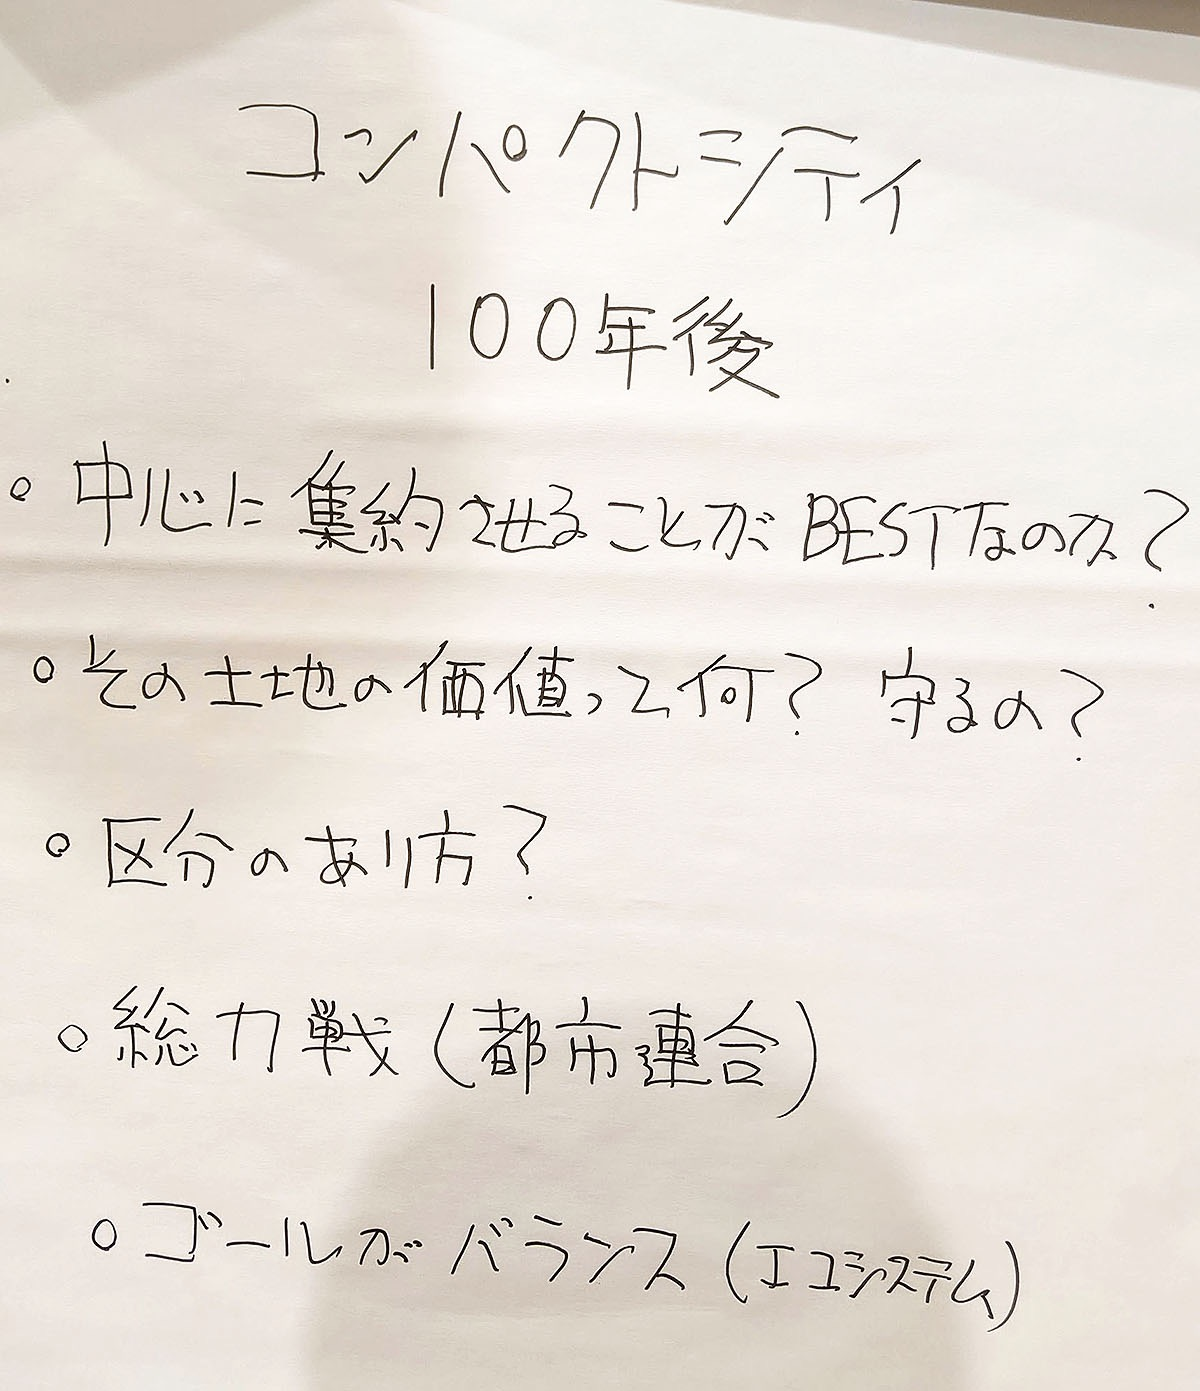 コンパクトシティ
100年後
○ 中心に集約させることがBESTなのか?
○ その土地の価値って何? 守るの?
○ 区分のあり方?
○ 総力戦(都市連合)
○ ゴールがバランス(エコシステム)